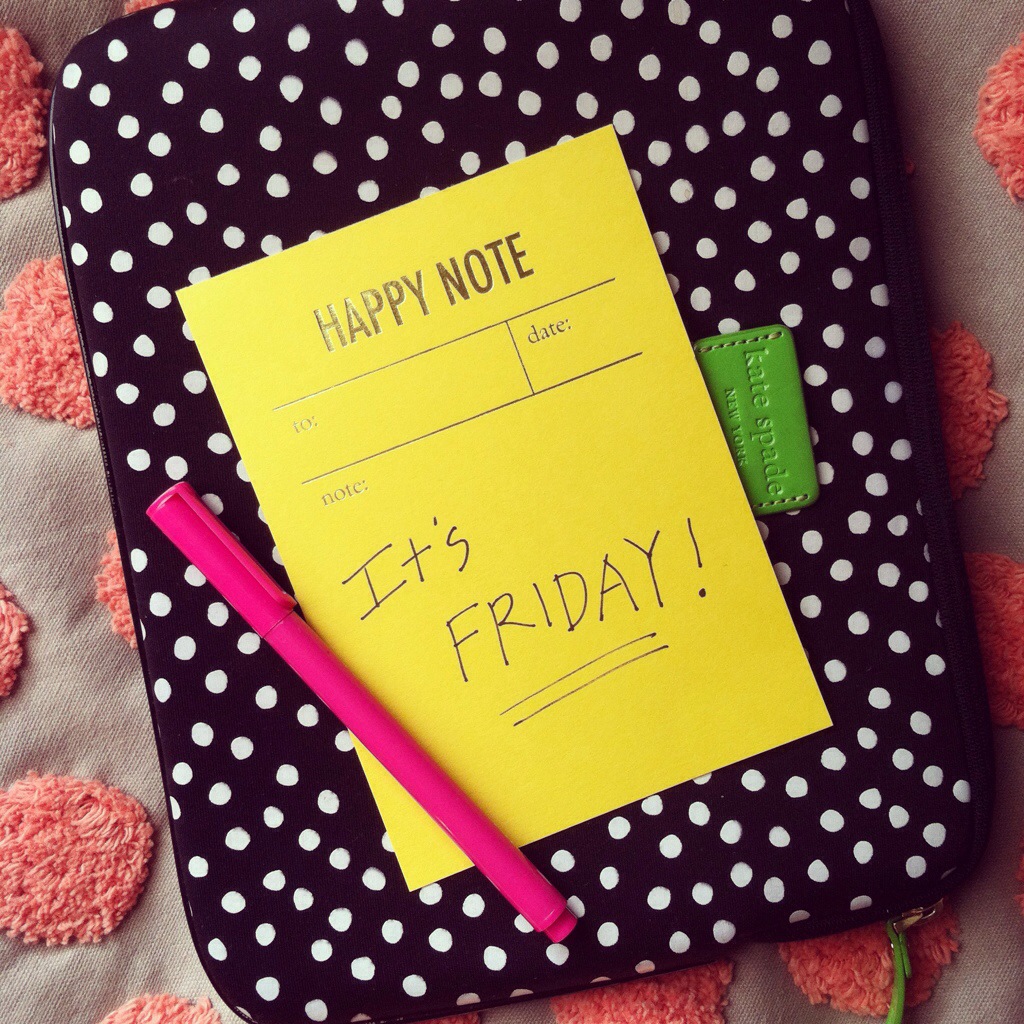 HAPPY NOTE
date:
to:
note:
It's
FRIDAY!
kate spade
NEW YORK